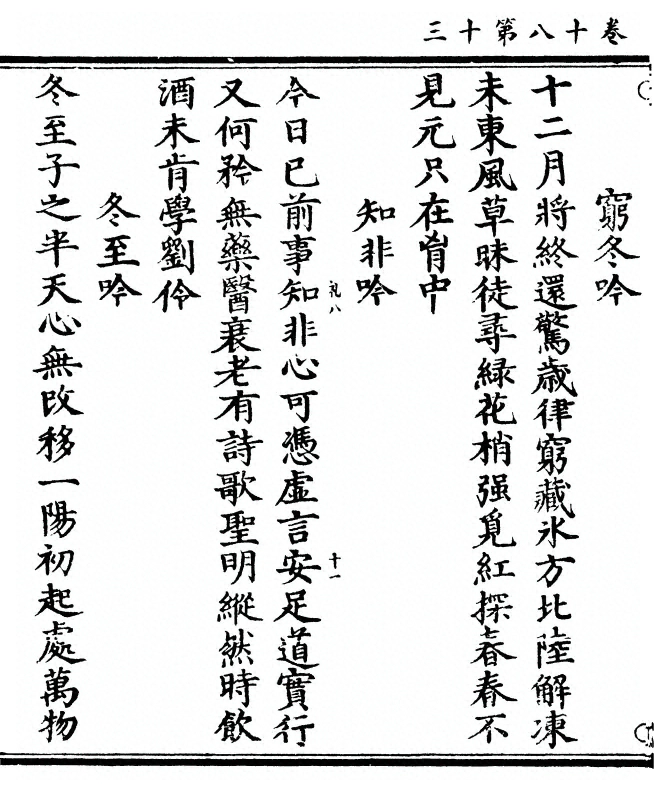 卷十八第十三
窮冬吟
十二月將終還驚歲律窮藏氷方北陸解凍
未東風草昧徒尋緑花梢强覓紅探春春不
見元只在胷中
知非吟
礼八
十一
今日已前事知非心可憑虛言安足道實行
又何矜無藥醫衰老有詩歌聖明縱然時飲
酒未肯學劉伶
冬至吟
冬至子之半天心無改移一陽初起處萬物